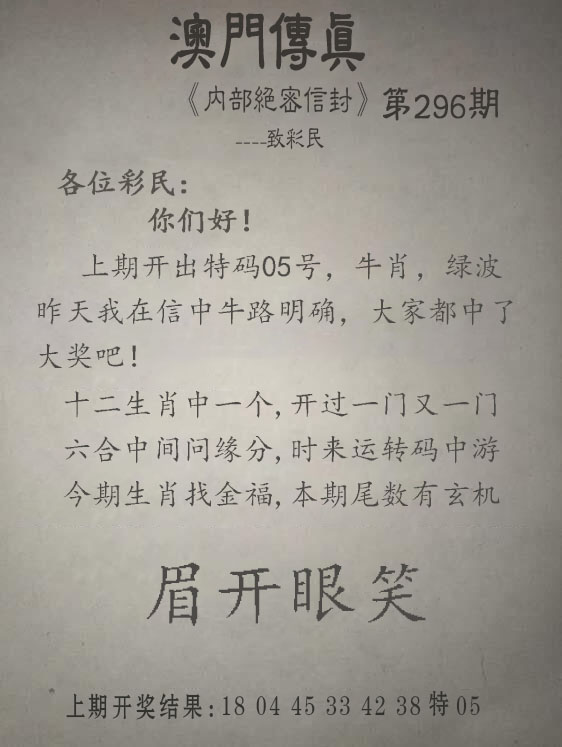 澳門傳眞
《内部絕密信封》第296期
----致彩民
各位彩民：
你们好！
上期开出特码05号，牛肖，绿波
昨天我在信中牛路明确，大家都中了
大奖吧！
十二生肖中一个,开过一门又一门
六合中间问缘分,时来运转码中游
今期生肖找金福,本期尾数有玄机
眉开眼笑
上期开奖结果：18 04 45 33 42 38 特 05